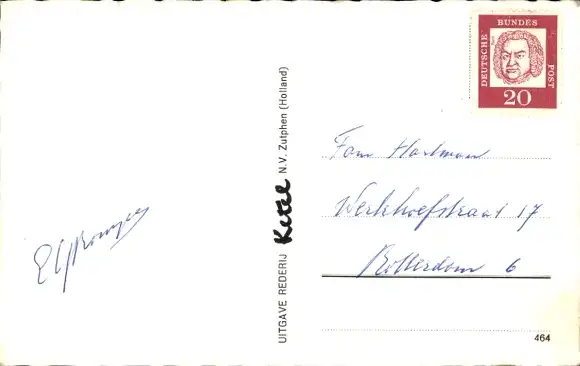 DEUTSCHE
BUNDES
POST
20
UITGAVE REDERIJ Ketel N.V. Zutphen (Holland)
Fam Hartman
Werkhoefstraat 17
Rotterdam 6
464